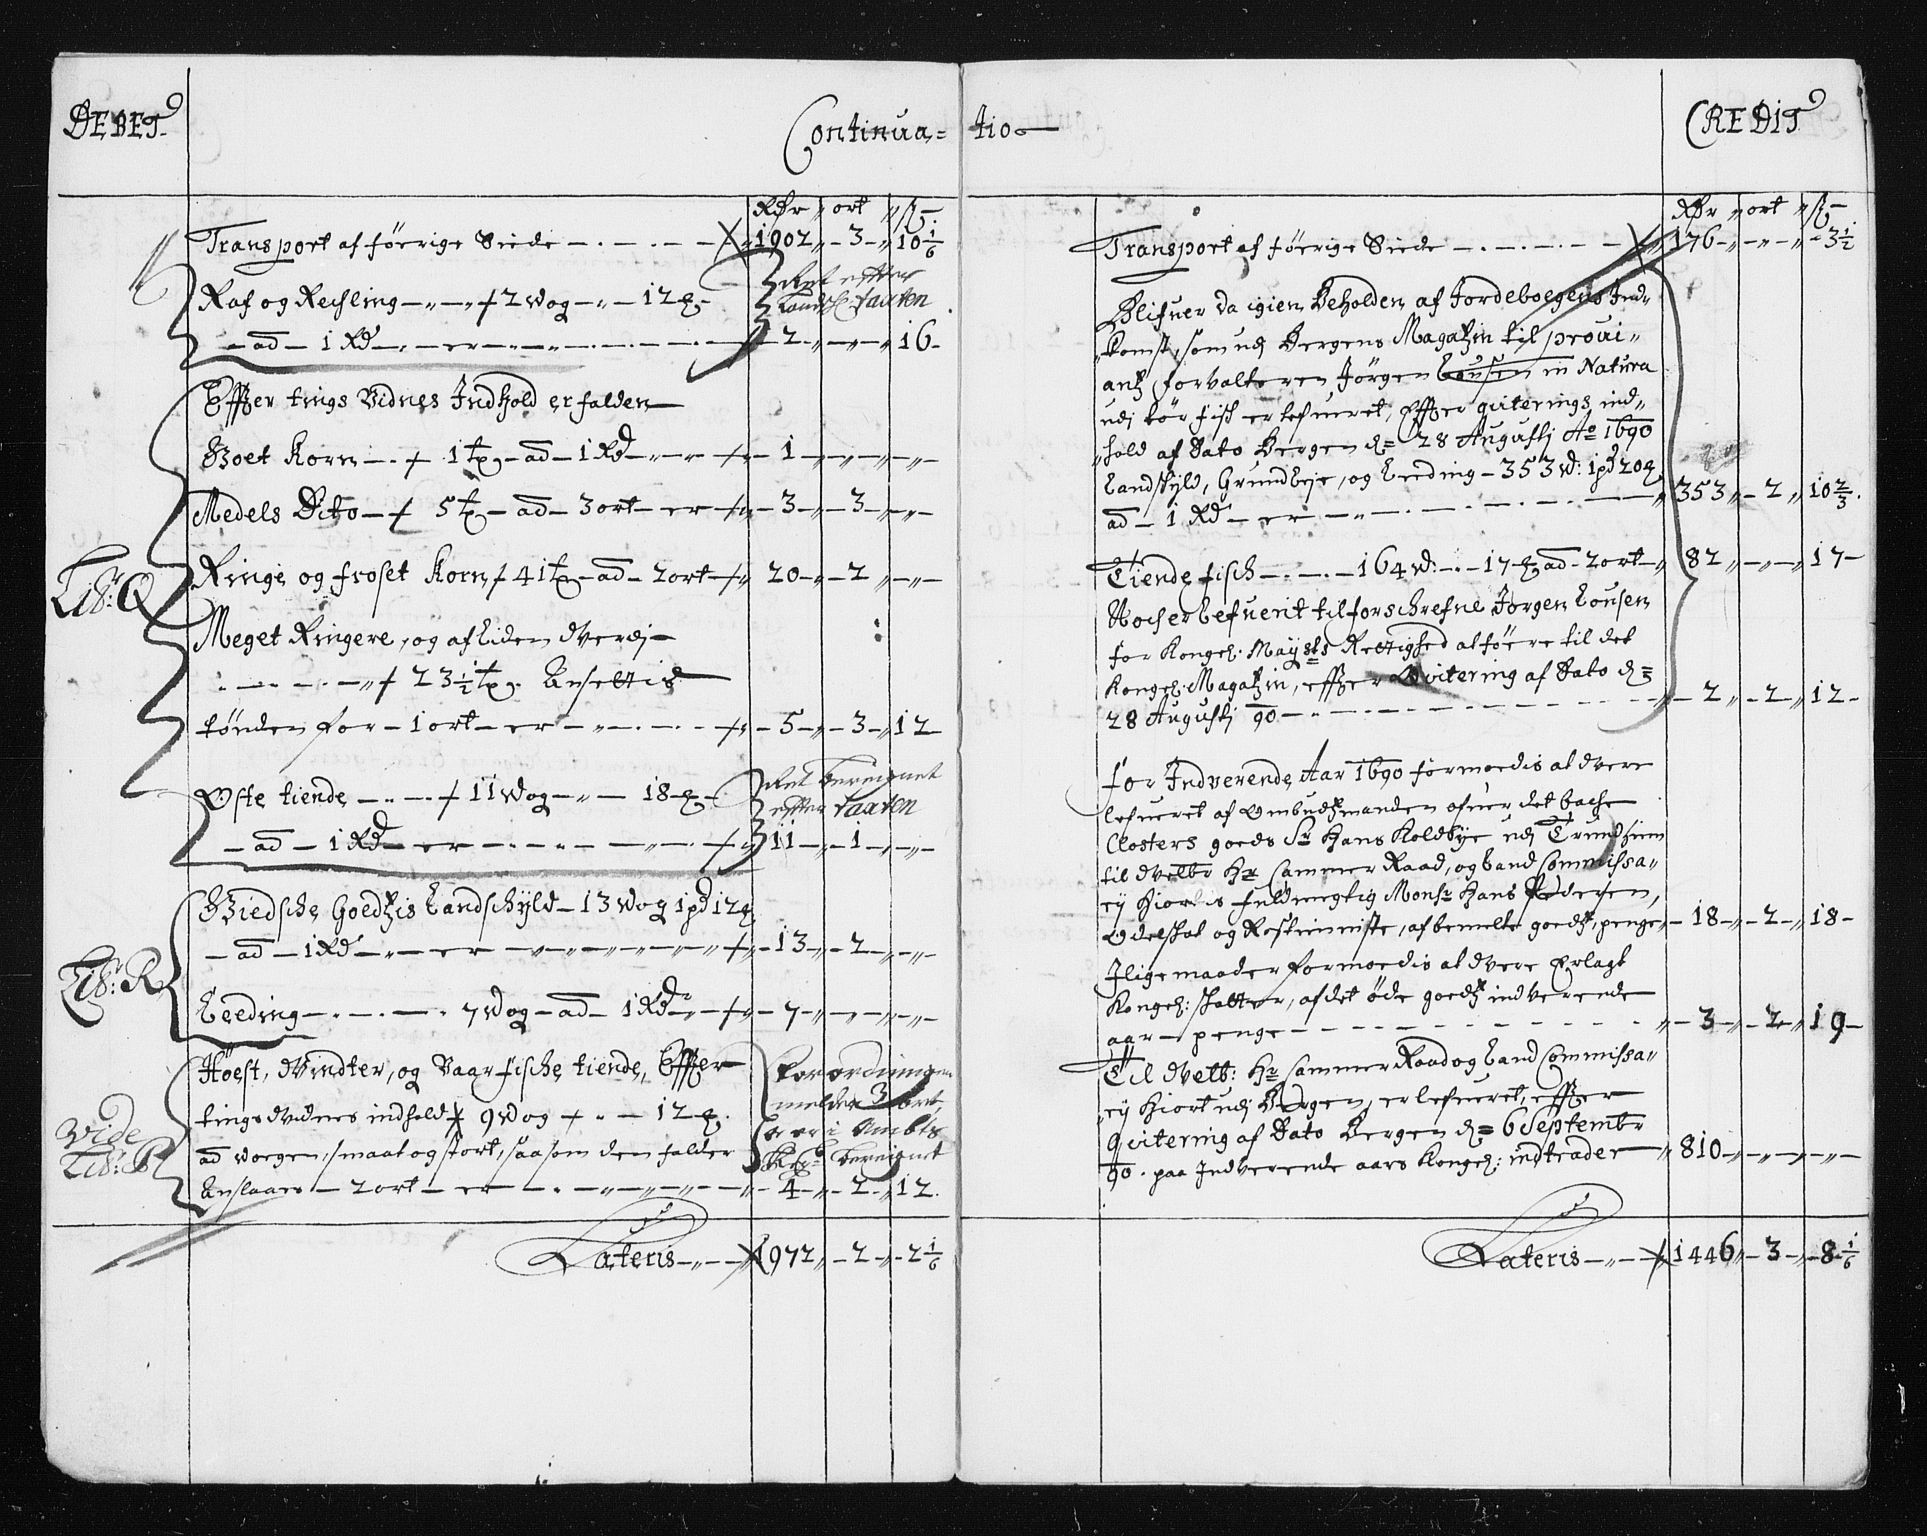 DEBET
Continua=
Rdr ort ß
Transport af föerige Siede 1902 - 3 - 10 1/6
Raf og Rechling - 2 wog - 12
Ret efter
taxten
ad - 1 Rd er - 2 - 16
Effter tings Vidnes Indhold er falden
Goet Korn - 1 t - ad - 1 Rd - 1
Medels Dito - 5 t - ad - 3 ort - er - 3 - 3
Litr: Q
Ringe og froset Korn 41 t - ad - 2 ort - 20 - 2
Meget Ringere, og af liden Verdj
23 1/2 t. Ansettis
tönden for - 1 ort - er - 5 - 3 - 12
Ret bereignet
Oste tiende - 11 wog - 18
efter taxten
ad - 1 Rd er - 11 - 1
Giedsche Goedtzis Landschyld - 13 wog 1 pd 12
ad - 1 Rd - er - 13 - 2
Litr: R
Leeding - 7 wog - ad - 1 Rd - 7
Höest, Vindter, og Vaar fische tiende, Effter
forordningen
tings vidnes indhold 9 wog - 12
melder 3 ort,
er i Ambts
Vide
Litr: P
ad woegen, smaat og stort, saasom den falder
bereignet
Anslaaes - 2 ort - er - 4 - 2 - 12
Lateris 1972 - 2 - 2 1/6
tio
CREDIT
Rdr ort ß
Transport af föerige Siede 176 - 3 1/2
Blifuer da igien Beholden af Jordeboegens Ind=
komst, som udj Bergens Magatzin til provi=
antz forvalteren Jörgen Lousen in Natura
udj tör fisk er lefueret, Effter qviterings ind=
hold af Dato Bergen d= 28 Augustj Ao 1690
Landskyld, Grundleje, og Leeding - 353 w: 1 pd 20
ad - 1 Rd - er - 353 - 2 - 10 2/3
Tiende fisch - 164 w: - 17 ad - 2 ort - 82 - 17
Noch er lefuerit til forschrefne Jörgen Lousen
for Kongel. Maysts Rettighed at föere til det
Kongel. Magatzin, effter Qvitering af Dato d=
28 Augustj 90 - 2 - 2 - 12
for Indverende Aar 1690 formoedis at vere
lefueret af Ombudzmanden ofuer det bache
Closters goeds Sr Hans Koldbye udj Trundhiem
til Velbr Hr Cammer Raad, og Land Commissa=
ry Hiortis fuldmegtig Monsr Hans Pedersen,
Odelskat og Rostienniste, af bemelte goedtz, penge - 18 - 2 - 18
Jlige maader formoedis at vere Erlagt
Kongel: skatter, af det öde goedtz indverende
aar - penge - 3 - 2 - 19
Til Velb: Hr Cammer Raad og Land Commissa=
ry Hiort udj Bergen, er lefueret, effter
qvitering af Dato Bergen d= 6 Septembr
90. paa Indverende aars Kongel: indtrader - 810
Lateris 1446 - 3 - 8 1/6